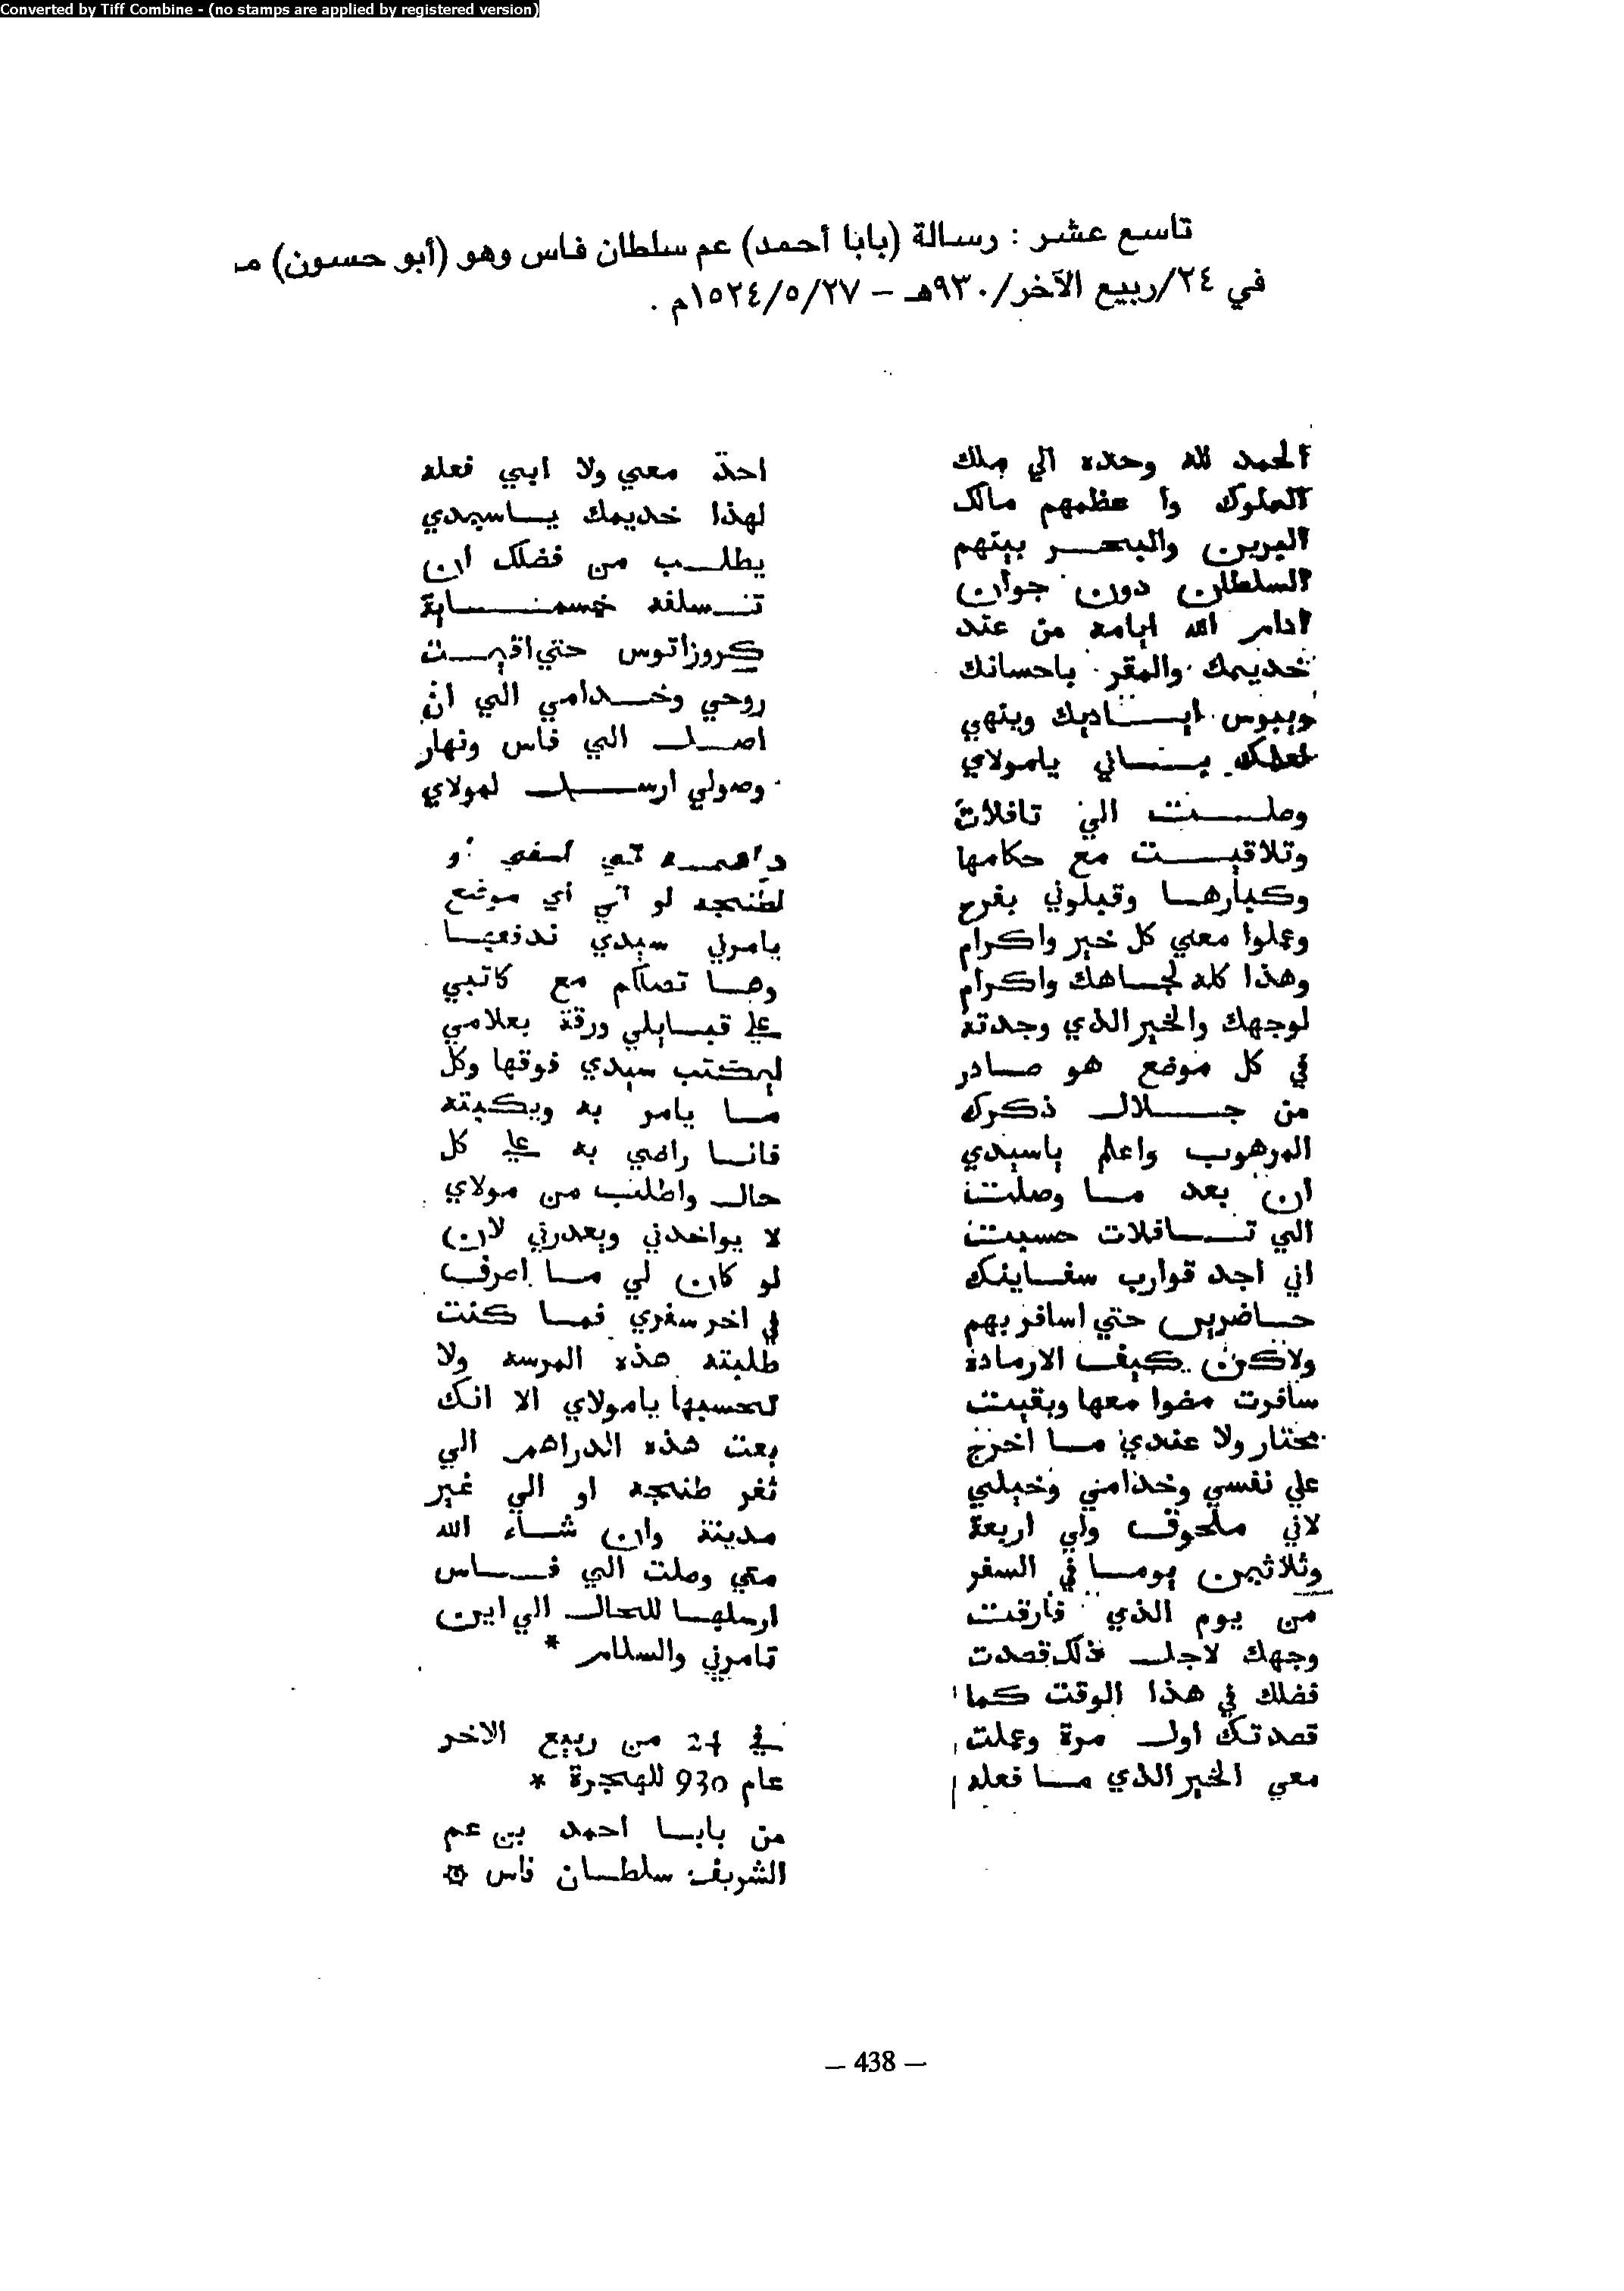 Converted by Tiff Combine - (no stamps are applied by registered version)
تاسع عشر : رسالة (بابا أحمد) عم سلطان فاس وهو (أبو حسون)
في ٢٤/ربيع الآخر/٩٣٠هـ – ١٥٢٤/٥/٢٧م .
الحمد لله وحده الي ملك
الملوك وا عظمهم مالك
البرين والبحر بينهم
السلطان دون جوان
ادام الله ايامه من عند
خديمك والمقر باحسانك
ويبوس اياديك وينهي
لعلمك بـاني يامولاي
وصلت الي تافلات
وتلاقيت مع حكامها
وكبارها وقبلوني بفرح
وعملوا معي كل خير واكرام
وهذا كله لجاهك واكرام
لوجهك والخير الذي وجدته
في كل موضع هو صادر
من جلال ذكرك
المرهوب واعلم ياسيدي
ان بعد ما وصلت
الي تافلات حسبت
اني اجد قوارب سفاينك
حاضرين حتي اسافر بهم
ولاكن كيف الارمادة
سافرت مضوا معها وبقيت
محتار ولا عندي ما اخرج
علي نفسي وخدامي وخيلي
لاني ملحوق ولي اربعة
وثلاثين يوما في السفر
من يوم الذي فارقت
وجهك لاجل ذلك قصدت
فضلك في هذا الوقت كما
قصدتك اول مرة وعملت
معي الخير الذي ما فعله
احد معي ولا ابي فعله
لهذا خديمك ياسيدي
يطلب من فضلك ان
تسلفه خمسماية
كروزاتوس حتي اقيت
روحي وخدامي الي ان
اصل الي فاس ونهار
وصولي ارسل لمولاي
دراهمه لاسفي او
لطنجه او الي اي موضع
يامرني سيدي ندفعها
وها تصلكم مع كاتبي
علي قبايلي ورقة بعلامي
ليكتب سيدي فوقها وكل
ما يامر به ويكبته
فانا راضي به علي كل
حال واطلب من مولاي
لا يواخدني ويعدرني لان
لو كان لي ما اصرف
في اخر سفري فما كنت
طلبته هذه المرسه ولا
تحسبها يامولاي الا انك
بعت هذه الدراهم الي
ثغر طنجه او الي غير
مدينة وان شاء الله
متي وصلت الي فاس
ارسلها للحال الي اين
تامرني والسلام *
في 24 من ربيع الاخر
عام 930 للهجرة *
من بابا احمد بن عم
الشريف سلطان فاس
– 438 –